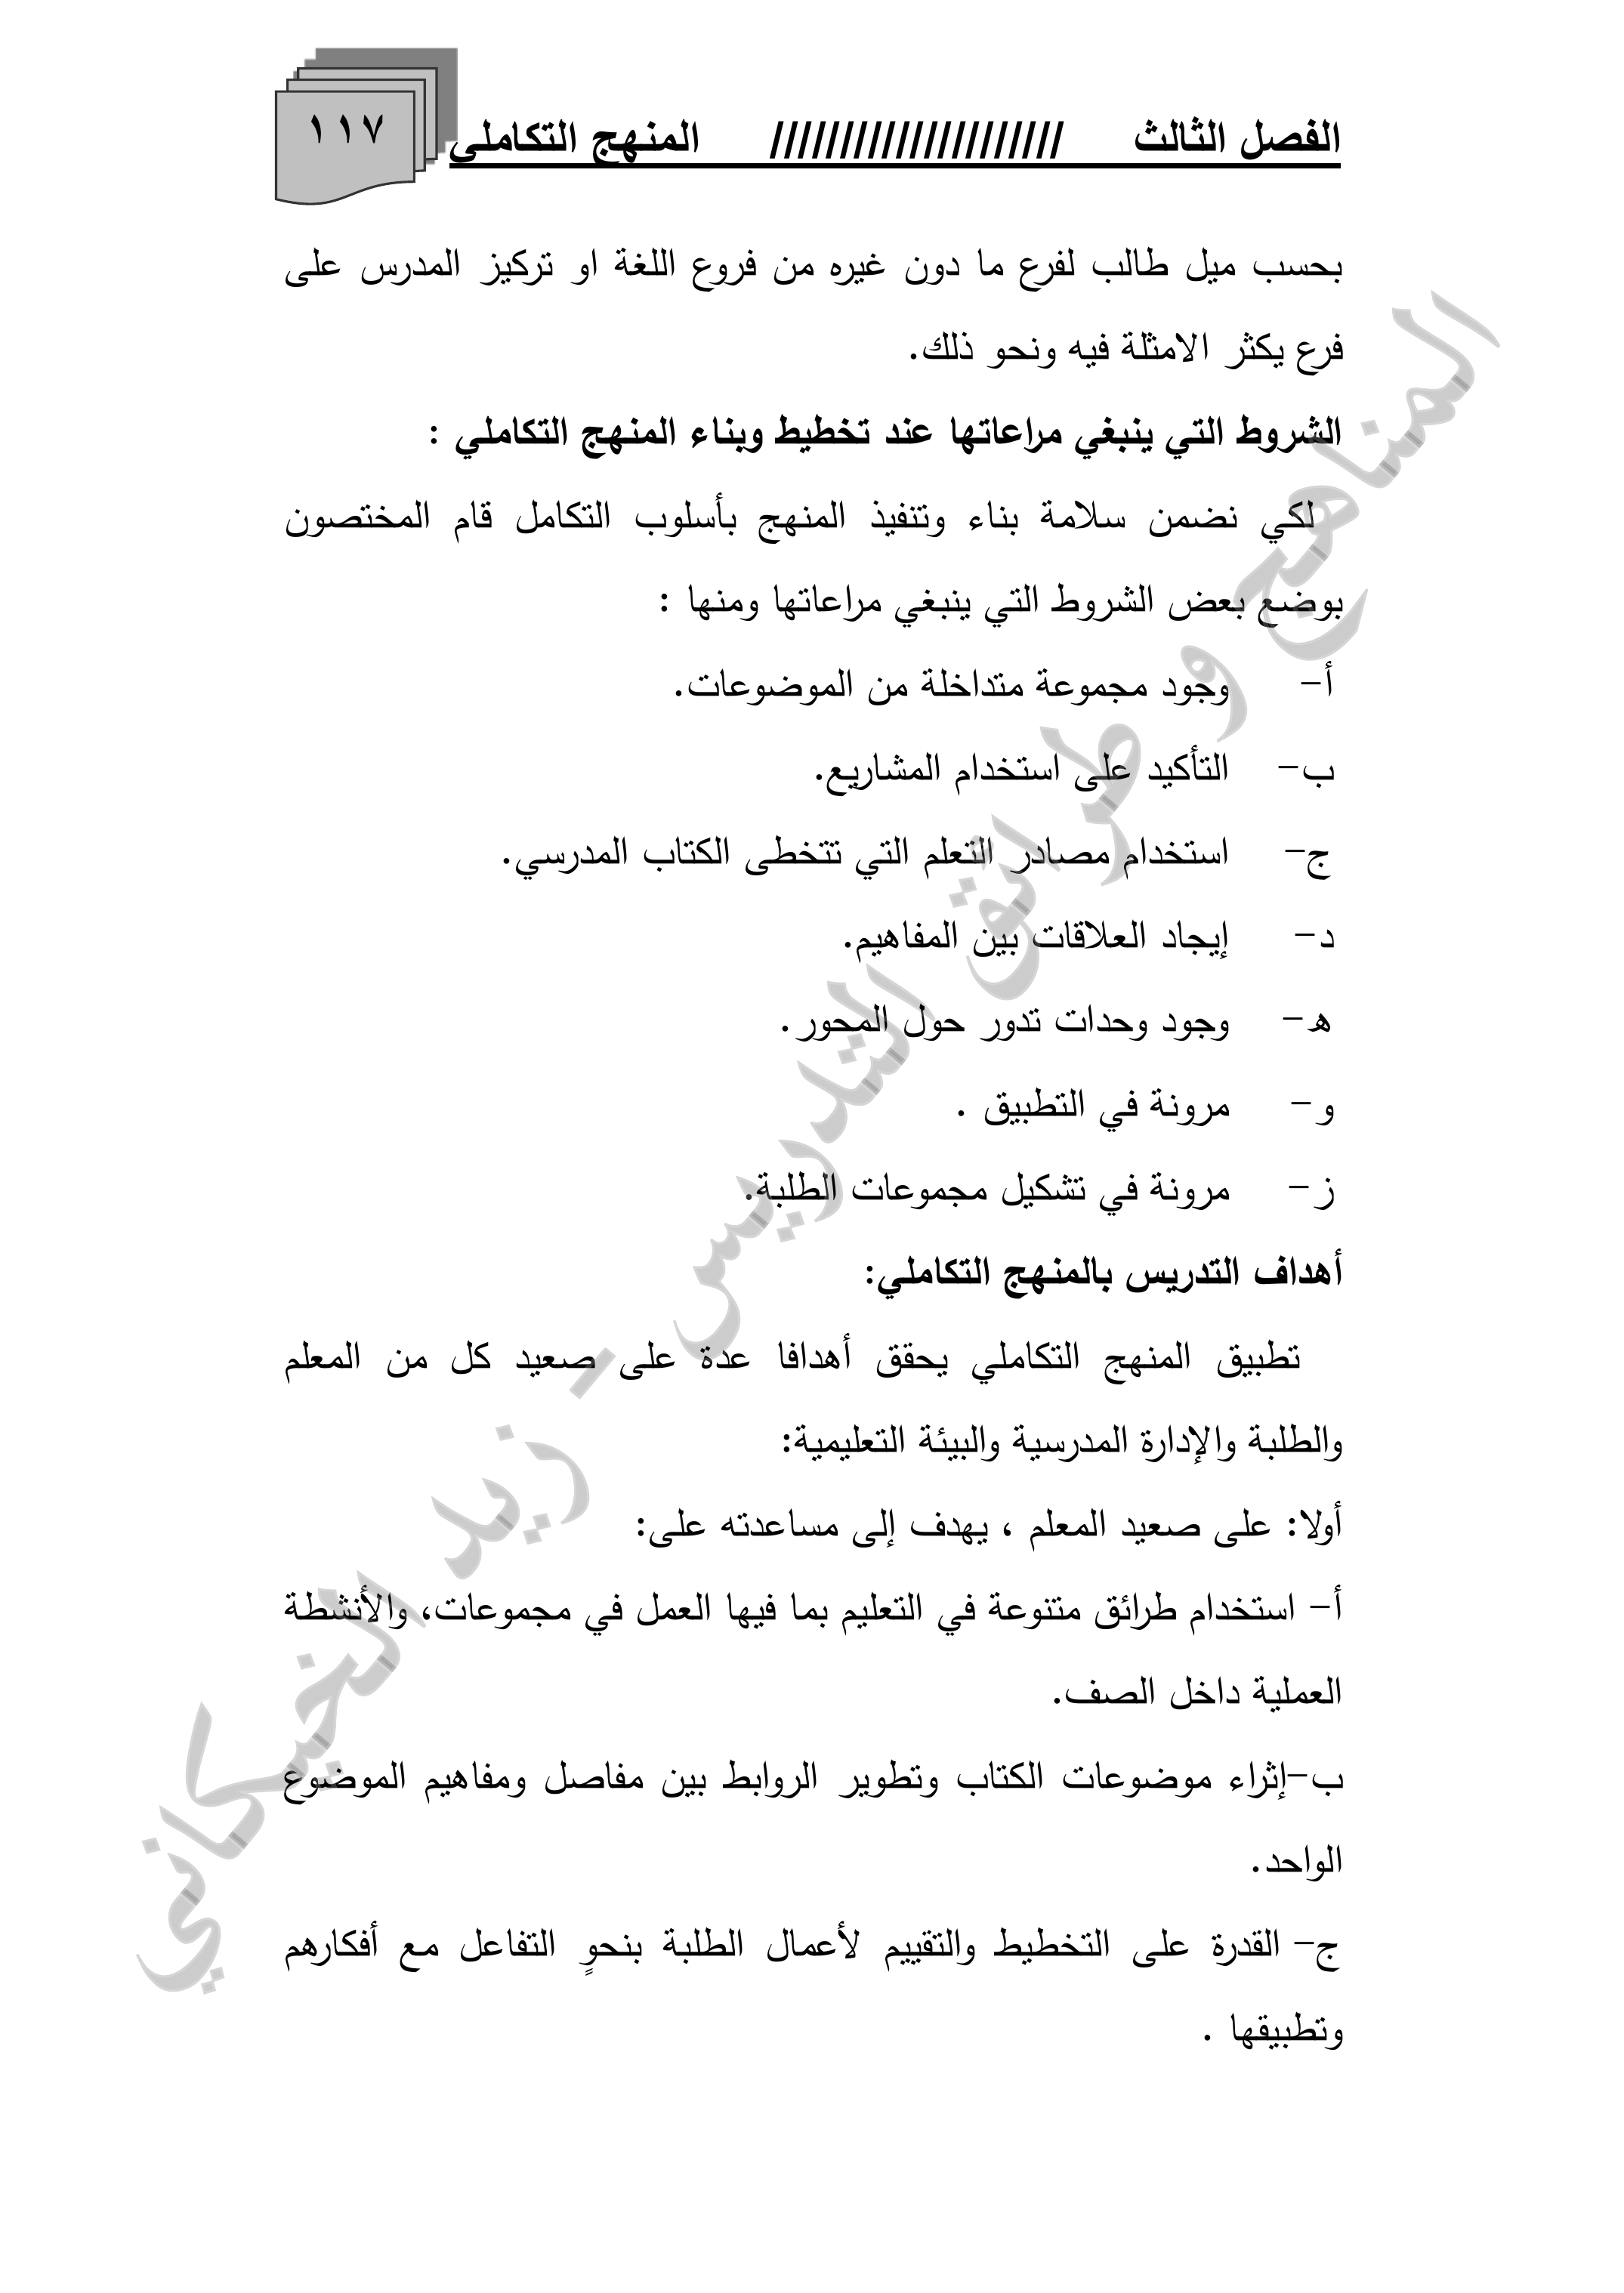 الفصل الثالث ///////////////////// المنهج التكاملي ١١٧
بحسب ميل طالب لفرع ما دون غيره من فروع اللغة او تركيز المدرس على
فرع يكثر الامثلة فيه ونحو ذلك.
الشروط التي ينبغي مراعاتها عند تخطيط وبناء المنهج التكاملي :
لكي نضمن سلامة بناء وتنفيذ المنهج بأسلوب التكامل قام المختصون
بوضع بعض الشروط التي ينبغي مراعاتها ومنها :
أ- وجود مجموعة متداخلة من الموضوعات.
ب- التأكيد على استخدام المشاريع.
ج- استخدام مصادر التعلم التي تتخطى الكتاب المدرسي.
د- إيجاد العلاقات بين المفاهيم.
هـ- وجود وحدات تدور حول المحور.
و- مرونة في التطبيق .
ز- مرونة في تشكيل مجموعات الطلبة.
أهداف التدريس بالمنهج التكاملي:
تطبيق المنهج التكاملي يحقق أهدافا عدة على صعيد كل من المعلم
والطلبة والإدارة المدرسية والبيئة التعليمية:
أولا: على صعيد المعلم ، يهدف إلى مساعدته على:
أ- استخدام طرائق متنوعة في التعليم بما فيها العمل في مجموعات، والأنشطة
العملية داخل الصف.
ب-إثراء موضوعات الكتاب وتطوير الروابط بين مفاصل ومفاهيم الموضوع
الواحد.
ج- القدرة على التخطيط والتقييم لأعمال الطلبة بنحوٍ التفاعل مع أفكارهم
وتطبيقها .
المناهج و طرائق التدريس - زيد الخيكاني